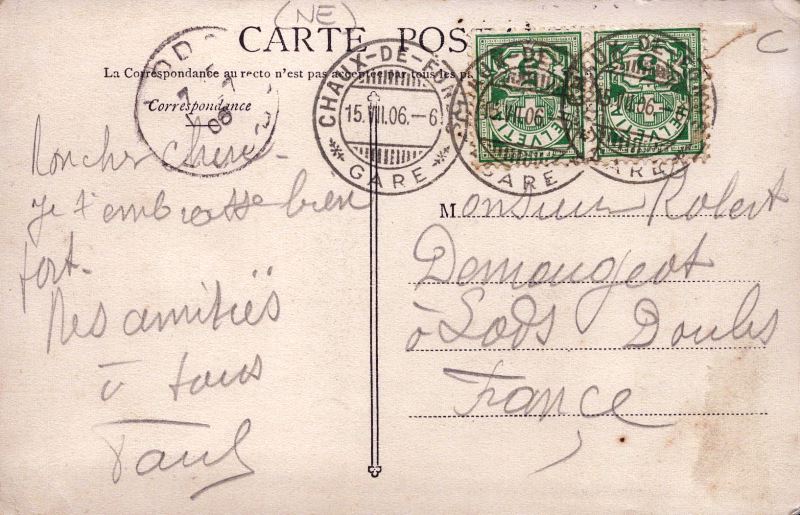 (NE)
CARTE POS
C
La Correspondance au recto n'est pas acceptée par tous les p
Correspondance
CHAUX-DE-FONDS
15.VII.06.-6
GARE
HELVETIA
HELVETIA
Mon cher Chéri.
Je t'embrasse bien
fort.
Mes amitiés
à tous
Paul
Monsieur Robert
Demougeot
à Lods Doubs
France